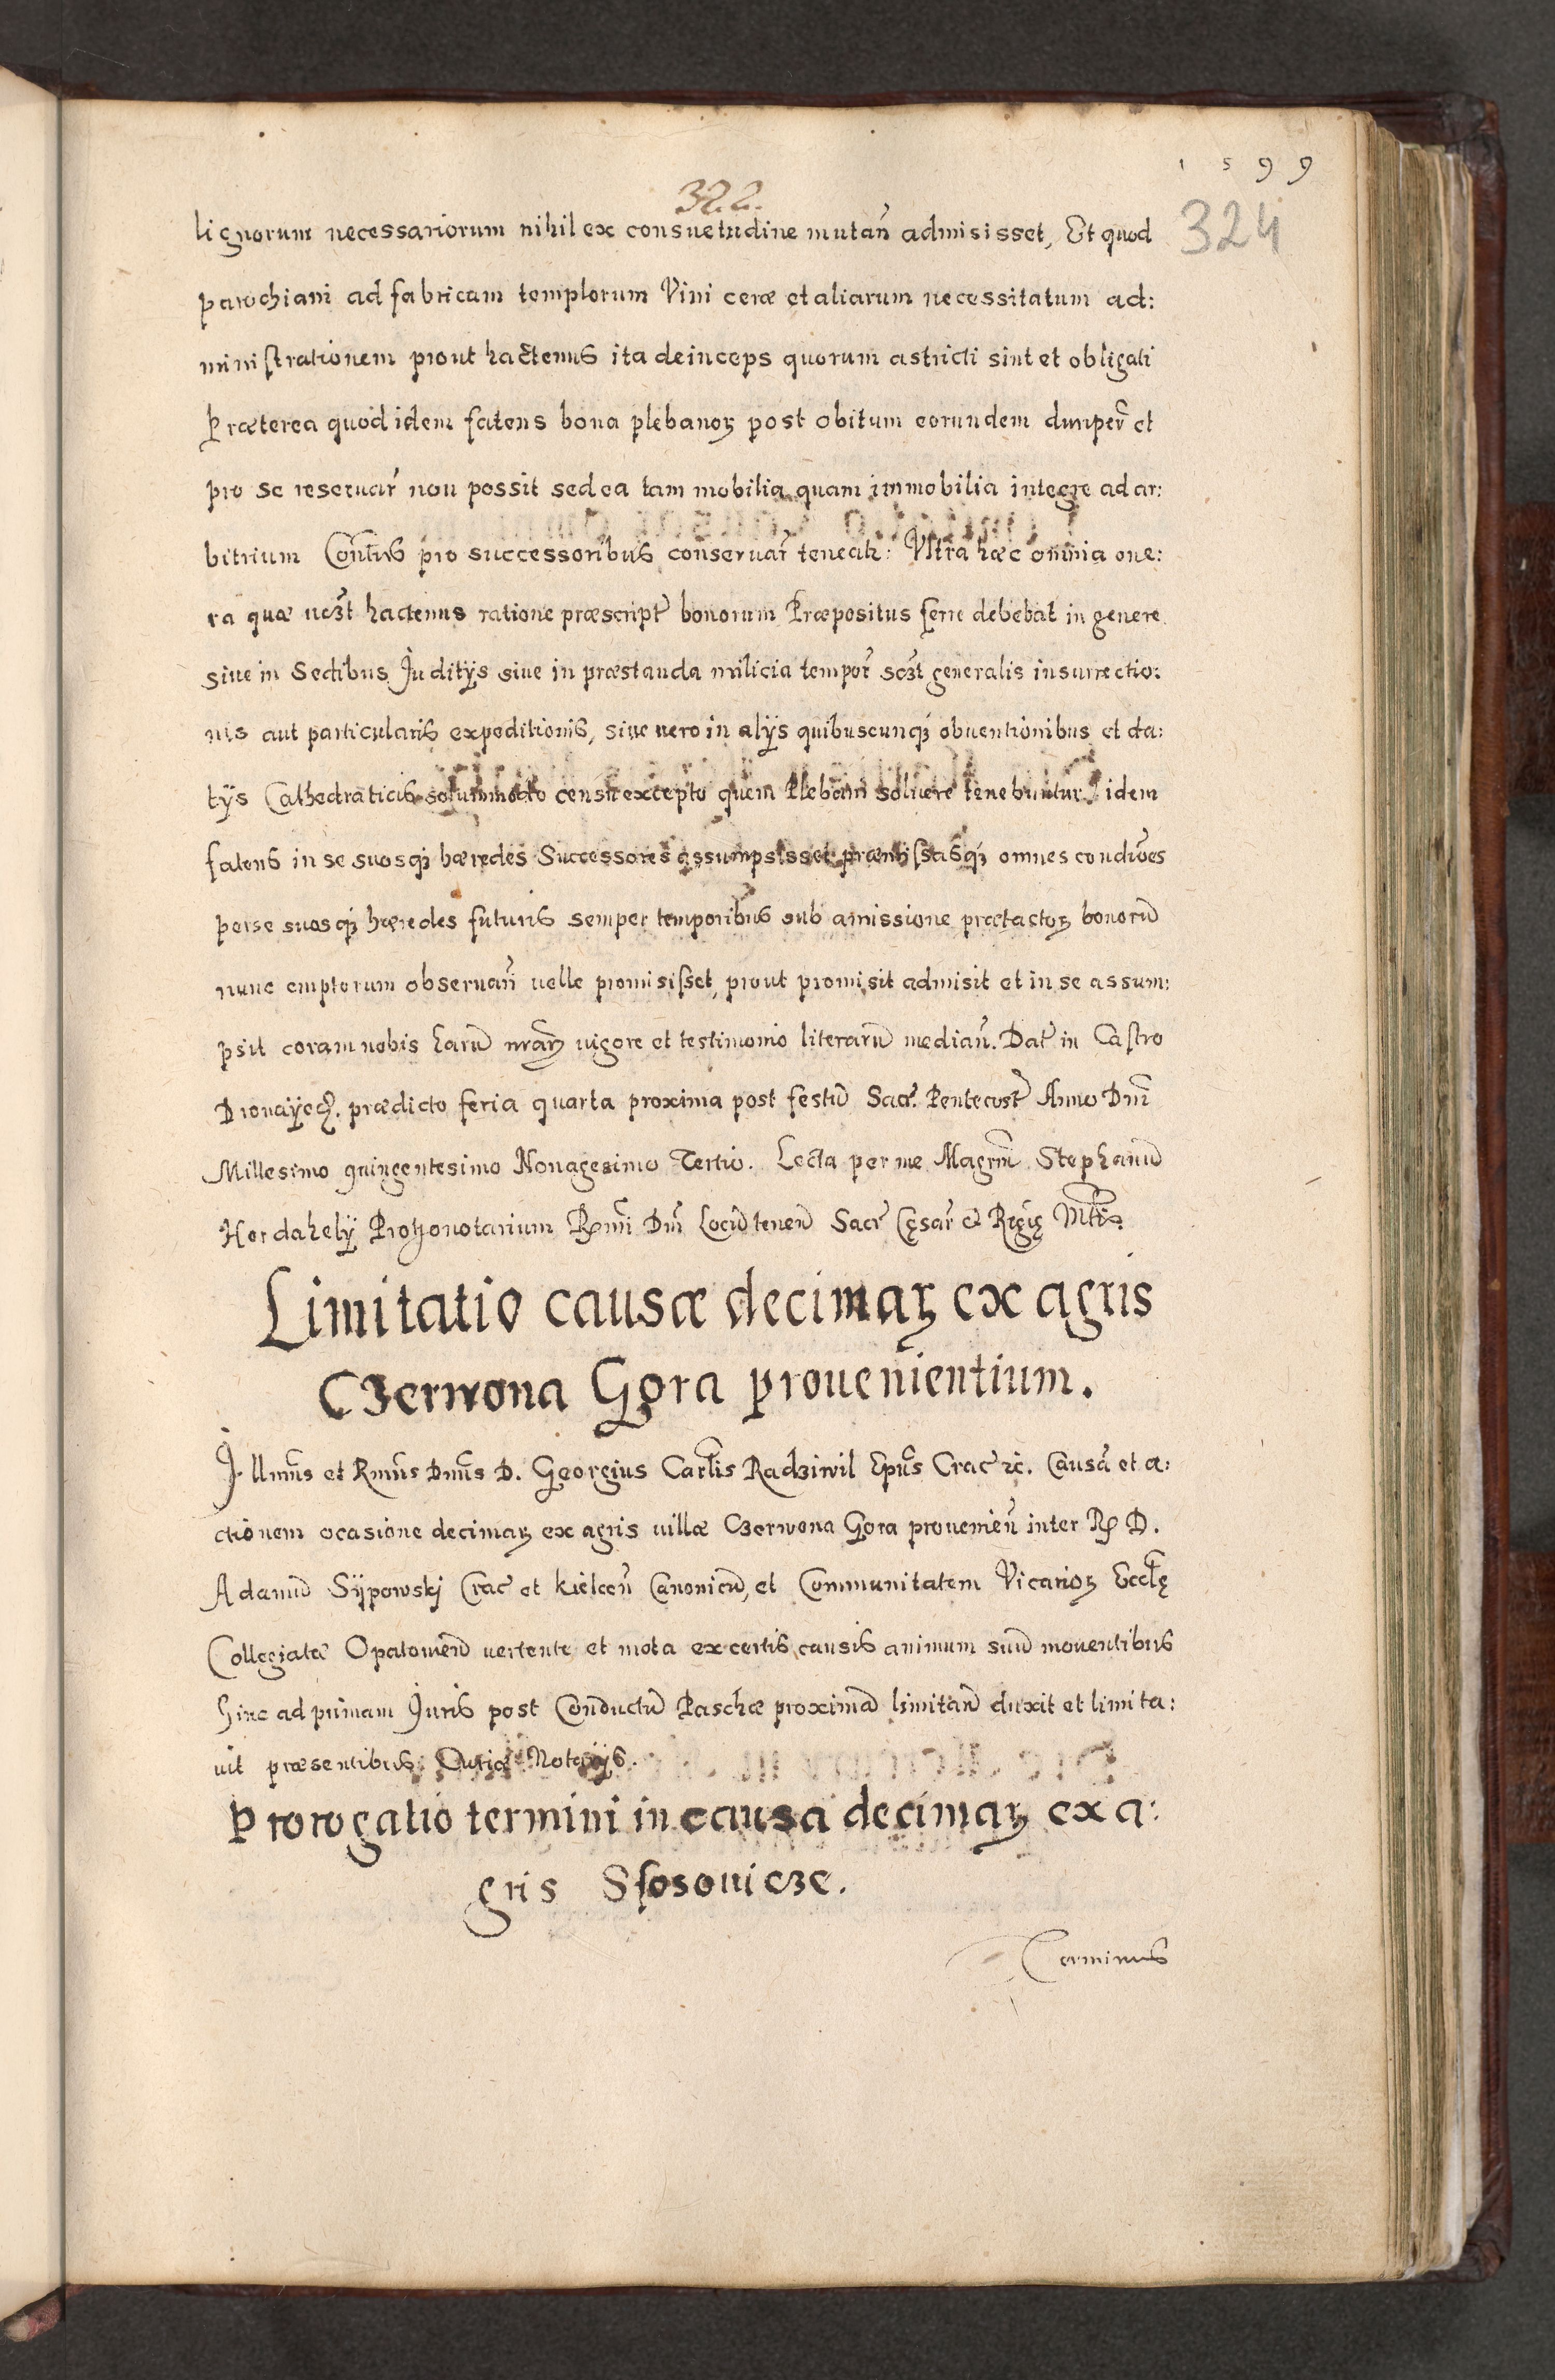 1599
322.
324
lignorum necessariorum nihil ex consuetudine mutań admisisset, Et quod
parochiani ad fabricam templorum Vini ceræ et aliarum necessitatum ad:
ministrationem prout hactenus ita deinceps quorum astricti sint et obligati
Præterea quod idem fatens bona plebanoꝝ post obitum eorundem et
pro se reseruar̃ non possit sed ea tam mobilia quam immobilia integre ad ar:
bitrium pro successoribus conseruar̃ teneat̃: Vltra hæc omnia one:
ra quæ hactenus ratione præscript̃ bonorum Præpositus ferre debebat in genere
siue in Sedibus Juditÿs siue in præstanda milicia tempor̃ sczt generalis insurrectio:
nis aut particularis expeditionis, siue uero in alÿs quibuscunqꝫ obuentionibus et da:
tÿs Cathedraticis solummodo censu excepto quem Plebani soluere tenebuntur idem
fatens in se suosqꝫ hæredes Successores assumpsisset præmissasqꝫ omnes condiões
per se suosqꝫ hæredes futuris semper temporibus sub amissione prætactoꝝ bonorũ
nunc emptorum obseruań uelle promisisset, prout promisit admisit et in se assum:
psit coram nobis harũ nrãꝝ uigore et testimonio literarũ mediań. Dat̃ in Castro
prædicto feria quarta proxima post festũ Sacr̃. Pentecost̃ Anno Dnĩ
Millesimo quingentesimo Nonagesimo Tertio. Lecta per me Magrm̃ Stephanũ
Hordahelÿ Protzonotarium Rṃi Dnĩ Locũtenen̄ Sacr̃ Cęsar̃ et Regię Mttis
Limitatio causæ decimaꝝ ex agris
Czerwona Gora prouenientium.
Jllmũs et Rmũs Dnũs D. Georgius Carlis Radziwil Epũs Crac̃ ꝛc. Causã et a:
ctionem ocasione decimaꝝ ex agris uillæ Czerwona Gora prouenień inter R D.
Adamũ Sÿpowskj Crac̃ et Kielceń Canonicũ, et Communitatem Vicarioꝝ Eccłę
Collegiatæ Opatouień uertente et mota ex certis causis animum suũ mouentibus
hinc ad primam Juris post Conductũ Paschæ proximã limitań duxit et limita:
uit præsentibus Curiæ Notarÿs.
Prorogatio termini in causa decimaꝝ ex a:
gris Sſosouicze.
Terminus